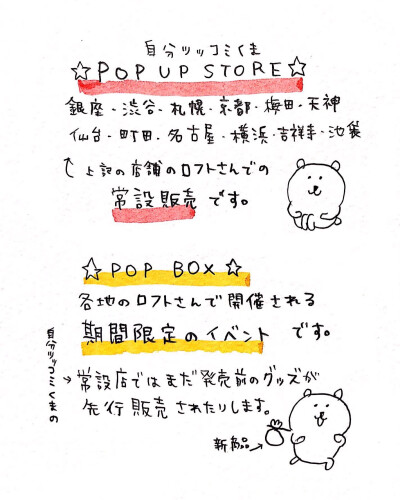 自分ツッコミくま
☆POP UP STORE☆
銀座・渋谷・札幌・京都・梅田・天神
仙台・町田・名古屋・横浜・吉祥寺・池袋
上記の店舗のロフトさんでの
常設販売です。
☆POP BOX☆
各地のロフトさんで開催される
期間限定のイベントです。
自分ツッコミくまの
→常設店ではまだ発売前のグッズが
先行販売されたりします。
新商品→